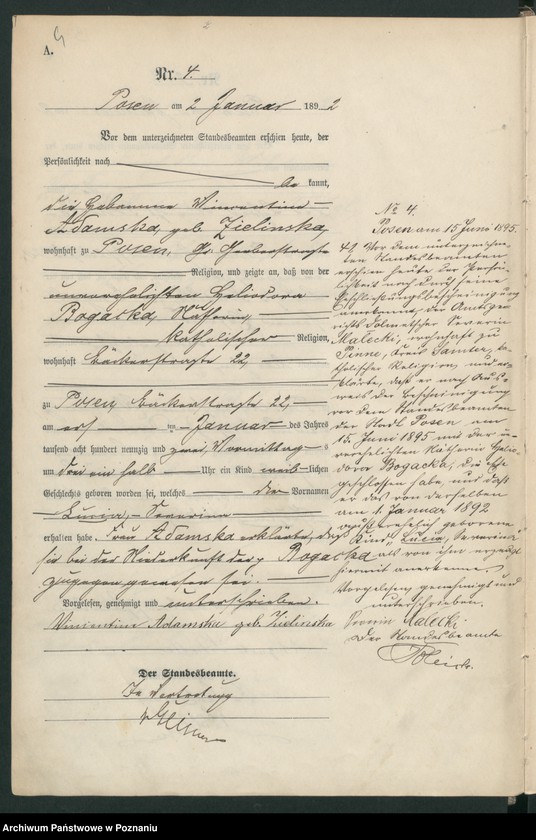 A.
Nr. 4.
Posen am 2 Januar 1892
Vor dem unterzeichneten Standesbeamten erschien heute, der
Persönlichkeit nach
be kannt,
die Hebamme Vincentine
Adamska, geb. Zielinska,
wohnhaft zu Posen, Gr. Gerberstraße
Religion, und zeigte an, daß von der
unverehelichten Heliodora
Bogacka, Näherin,
katholischer Religion,
wohnhaft Bäckerstraße 22,
zu Posen Bäckerstraße 22,
am ersten Januar des Jahres
tausend acht hundert neunzig und zwei Vormittags
um drei ein halb Uhr ein Kind weiblichen
Geschlechts geboren worden sei, welches den Vornamen
Lucia, Severina
erhalten habe. Frau Adamska erklärte, daß
sie bei der Niederkunft der p. Bogacka
zugegen gewesen sei.
Vorgelesen, genehmigt und unterschrieben.
Vincentine Adamska geb. Zielinska
Der Standesbeamte.
In Vertretung
No 4.
Posen am 15 Juni 1895.
Vor dem unterzeichne-
ten Standesbeamten
erschien heute der Persön-
lichkeit nach durch seine
Eheschließungsbescheinigung
anerkannt, der Amtsge-
richts Dolmetscher Severin
Małecki, wohnhaft zu
Pinne, Kreis Samter, ka-
tholischer Religion, und er-
klärte, daß er nach Aus-
weis der Bescheinigung
vor dem Standesbeamten
der Stadt Posen am
15. Juni 1895 mit der un-
verehelichten Näherin Helio-
dora Bogacka, die Ehe
geschlossen habe, und daß
er das von derselben
am 1. Januar 1892
außerehelich geborene
Kind „Lucia, Severina"
als von ihm erzeugt
hiermit anerkenne.
Vorgelesen, genehmigt und
unterschrieben.
Severin Małecki
Der Standesbeamte
Archiwum Państwowe w Poznaniu